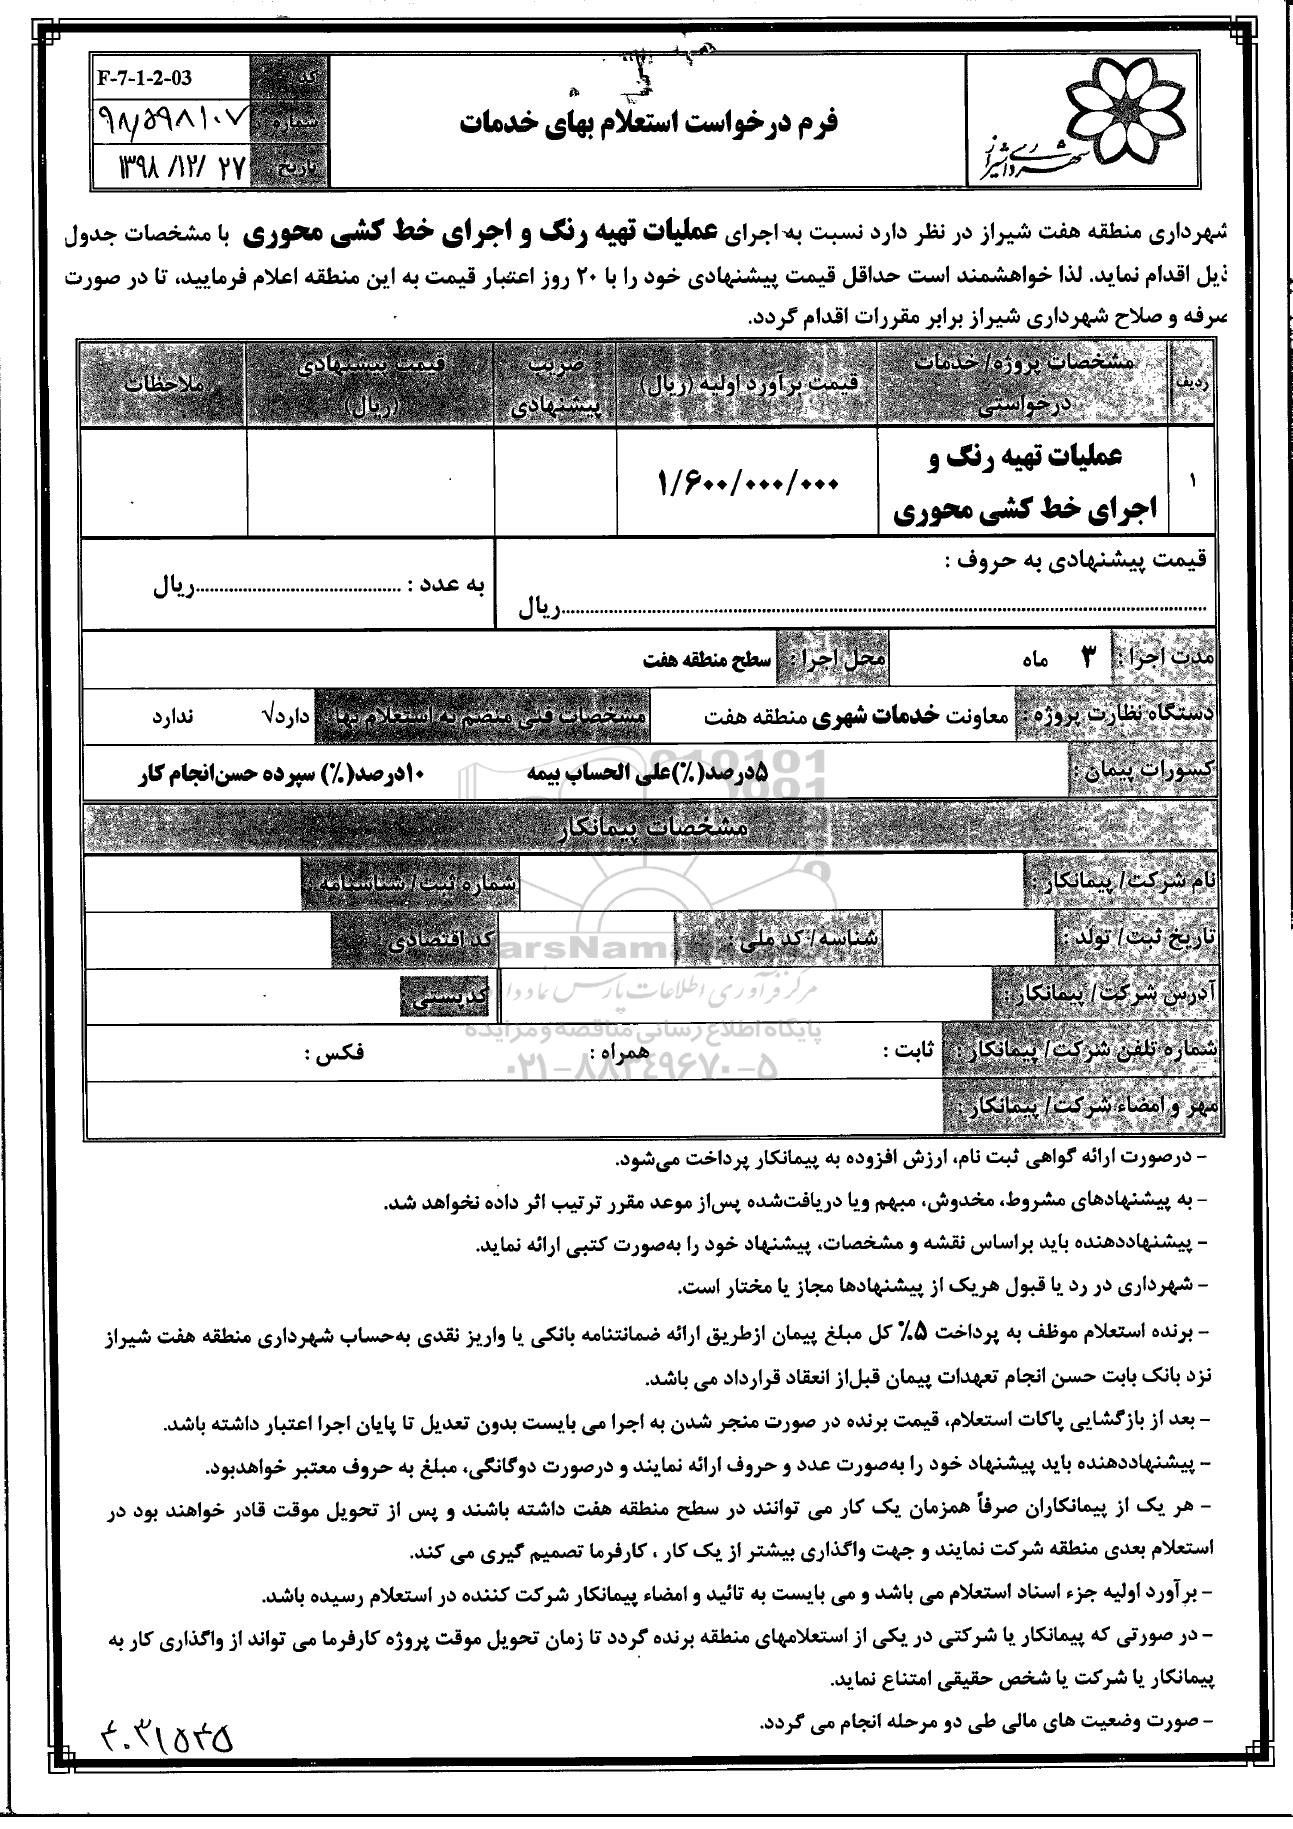 شهرداری شیراز
فرم درخواست استعلام بهای خدمات
کد : F-7-1-2-03
شماره : ۹۸/۵۹۸۱۰۷
تاریخ : ۱۳۹۸/۱۲/۲۷
شهرداری منطقه هفت شیراز در نظر دارد نسبت به اجرای عملیات تهیه رنگ و اجرای خط کشی محوری با مشخصات جدول
ذیل اقدام نماید. لذا خواهشمند است حداقل قیمت پیشنهادی خود را با ۲۰ روز اعتبار قیمت به این منطقه اعلام فرمایید، تا در صورت
صرفه و صلاح شهرداری شیراز برابر مقررات اقدام گردد.
ردیف
مشخصات پروژه/ خدمات
درخواستی
قیمت برآورد اولیه (ریال)
ضریب
پیشنهادی
قیمت پیشنهادی
(ریال)
ملاحظات
۱
عملیات تهیه رنگ و
اجرای خط کشی محوری
۱/۶۰۰/۰۰۰/۰۰۰
قیمت پیشنهادی به حروف :
..........ریال
به عدد : ..........ریال
مدت اجرا : ۳ ماه محل اجرا : سطح منطقه هفت
دستگاه نظارت پروژه : معاونت خدمات شهری منطقه هفت مشخصات فنی منضم به استعلام بها : دارد√ ندارد
کسورات پیمان : ۵درصد(%)علی الحساب بیمه ۱۰درصد(%) سپرده حسن‌انجام کار
مشخصات پیمانکار
نام شرکت/ پیمانکار : شماره ثبت/ شناسنامه :
تاریخ ثبت/ تولد : شناسه/ کد ملی : کد اقتصادی :
آدرس شرکت/ پیمانکار : کدپستی :
شماره تلفن شرکت/ پیمانکار : ثابت : همراه : فکس :
مهر و امضاء شرکت/ پیمانکار :
مرکز فرآوری اطلاعات پارس نماد داده
پایگاه اطلاع رسانی مناقصه و مزایده
۰۲۱-۸۸۳۴۹۶۷۰-۵
- درصورت ارائه گواهی ثبت نام، ارزش افزوده به پیمانکار پرداخت می‌شود.
- به پیشنهادهای مشروط، مخدوش، مبهم ویا دریافت‌شده پس‌از موعد مقرر ترتیب اثر داده نخواهد شد.
- پیشنهاددهنده باید براساس نقشه و مشخصات، پیشنهاد خود را به‌صورت کتبی ارائه نماید.
- شهرداری در رد یا قبول هریک از پیشنهادها مجاز یا مختار است.
- برنده استعلام موظف به پرداخت ۵% کل مبلغ پیمان ازطریق ارائه ضمانتنامه بانکی یا واریز نقدی به‌حساب شهرداری منطقه هفت شیراز
نزد بانک بابت حسن انجام تعهدات پیمان قبل‌از انعقاد قرارداد می باشد.
- بعد از بازگشایی پاکات استعلام، قیمت برنده در صورت منجر شدن به اجرا می بایست بدون تعدیل تا پایان اجرا اعتبار داشته باشد.
- پیشنهاددهنده باید پیشنهاد خود را به‌صورت عدد و حروف ارائه نمایند و درصورت دوگانگی، مبلغ به حروف معتبر خواهدبود.
- هر یک از پیمانکاران صرفاً همزمان یک کار می توانند در سطح منطقه هفت داشته باشند و پس از تحویل موقت قادر خواهند بود در
استعلام بعدی منطقه شرکت نمایند و جهت واگذاری بیشتر از یک کار ، کارفرما تصمیم گیری می کند.
- برآورد اولیه جزء اسناد استعلام می باشد و می بایست به تائید و امضاء پیمانکار شرکت کننده در استعلام رسیده باشد.
- در صورتی که پیمانکار یا شرکتی در یکی از استعلامهای منطقه برنده گردد تا زمان تحویل موقت پروژه کارفرما می تواند از واگذاری کار به
پیمانکار یا شرکت یا شخص حقیقی امتناع نماید.
- صورت وضعیت های مالی طی دو مرحله انجام می گردد.
۴۰۳۱۵۴۵